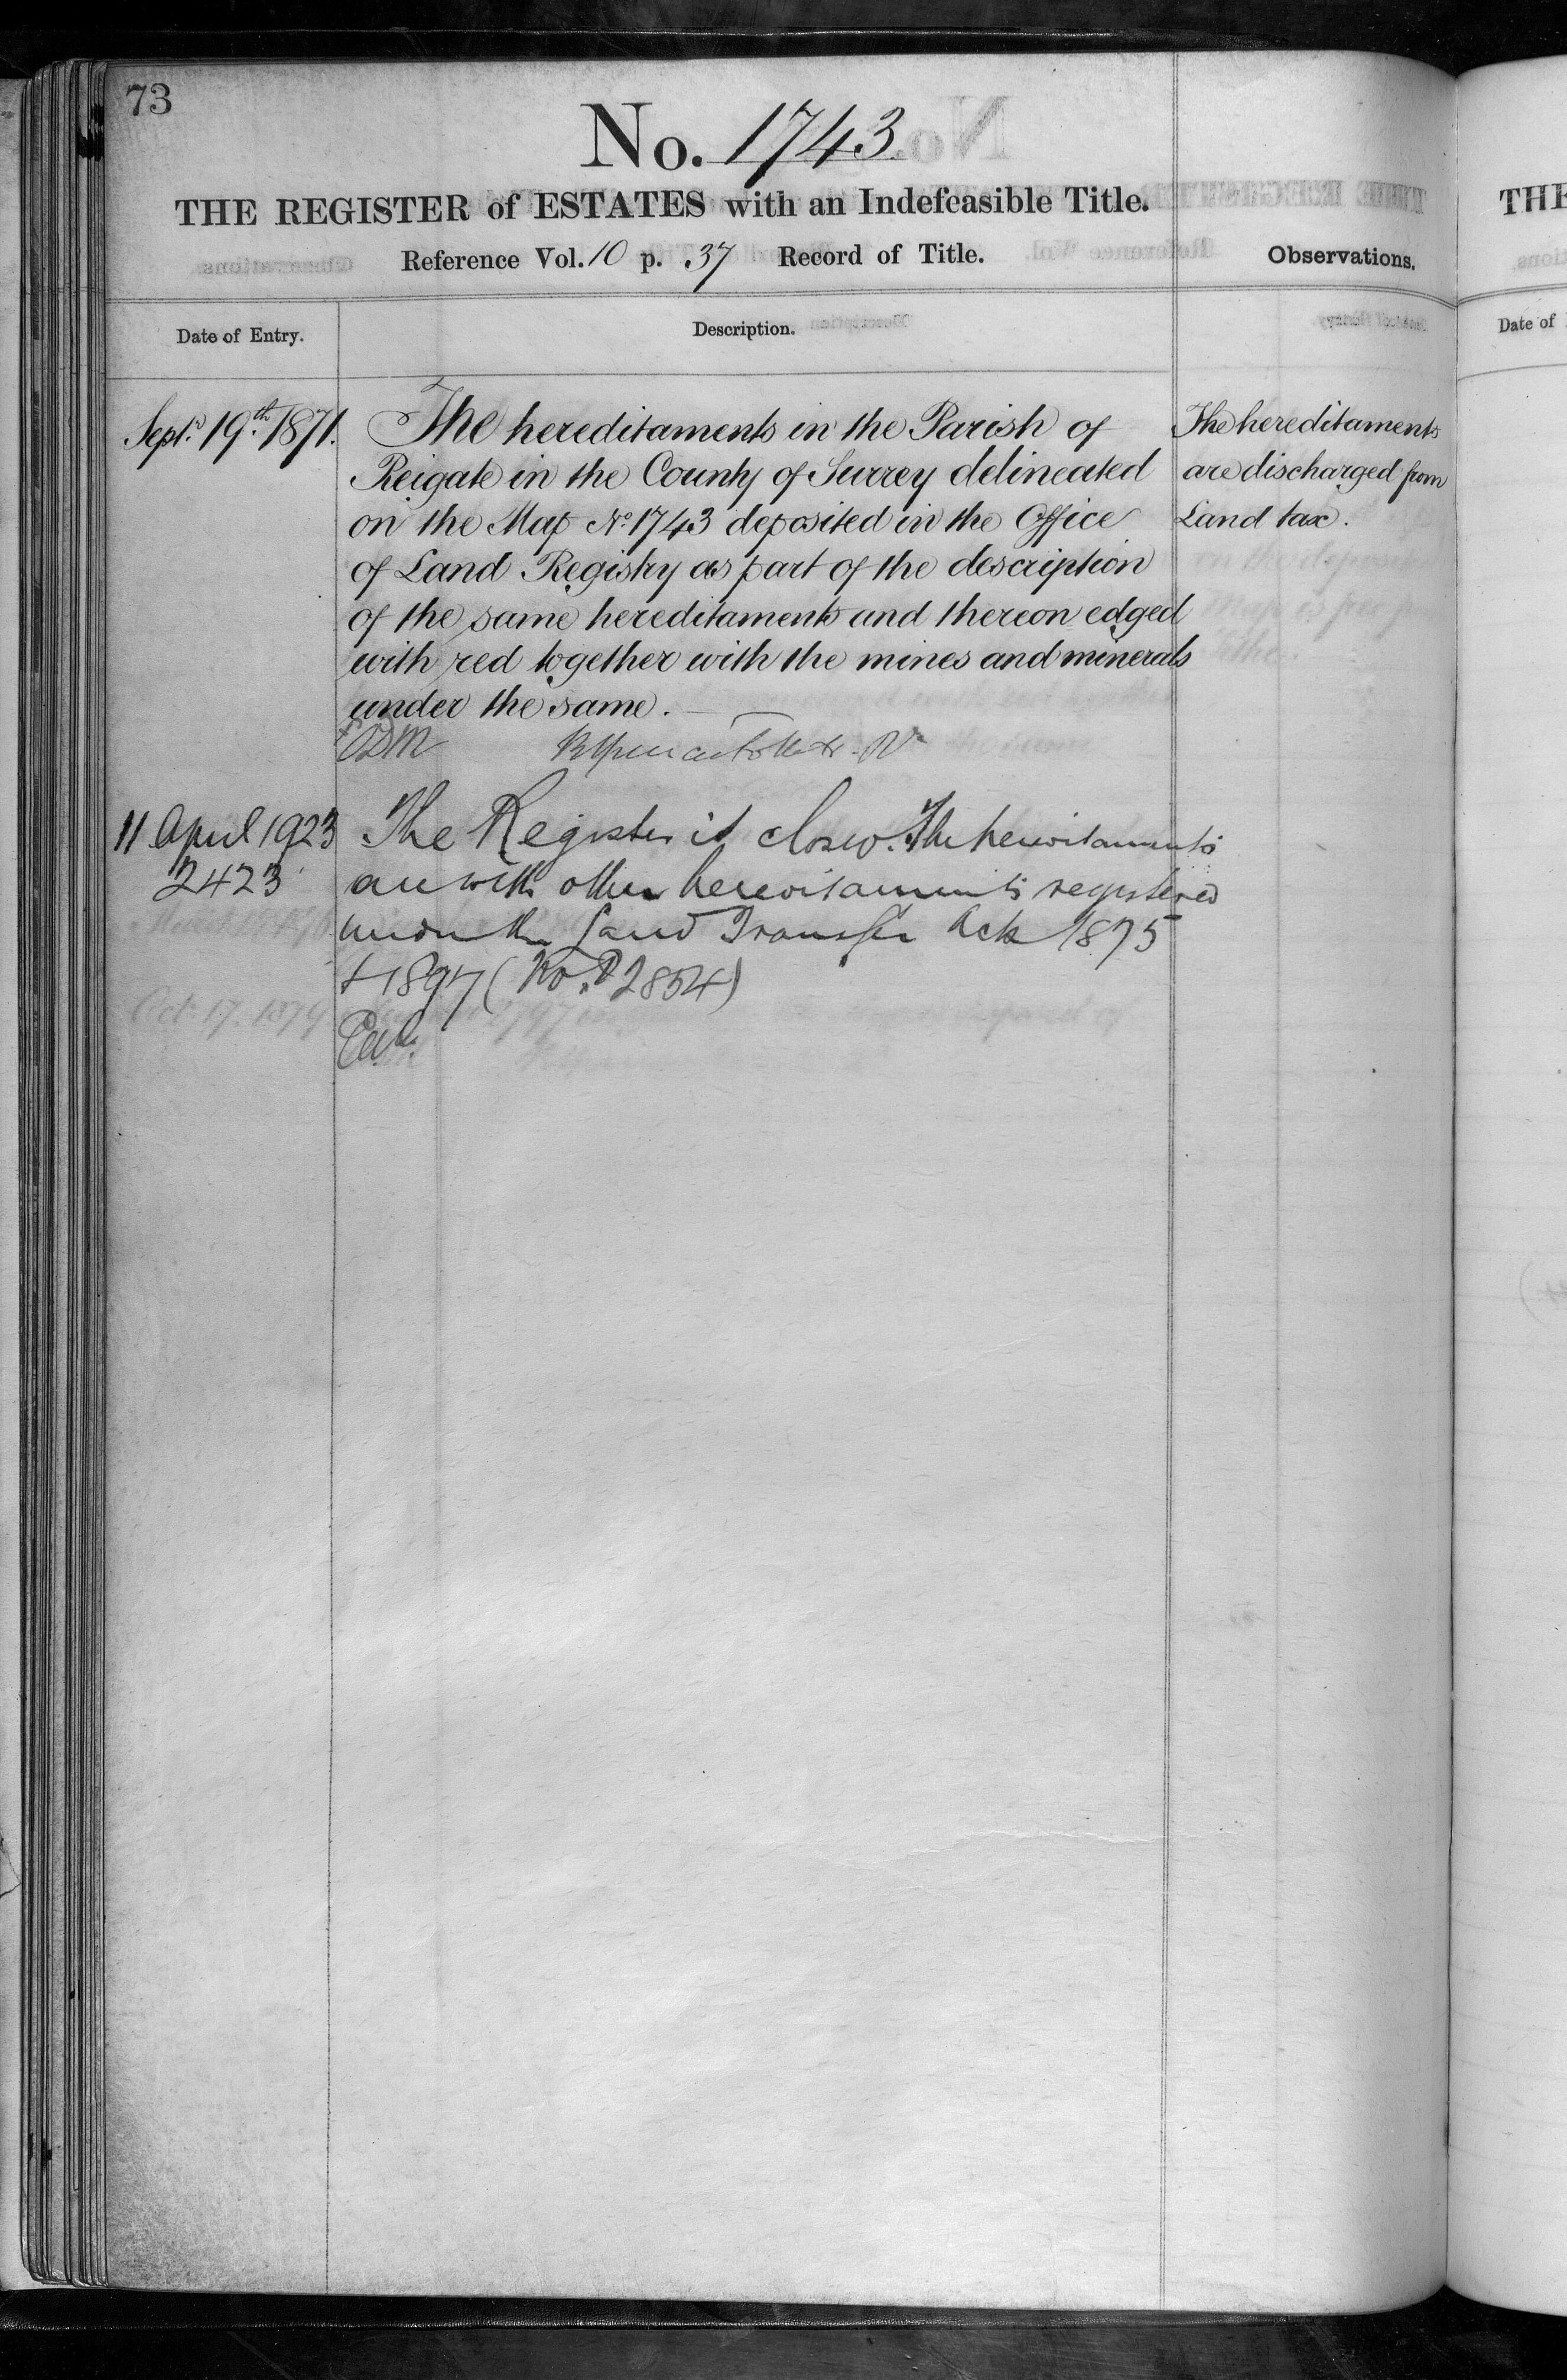 73
No. 1743
THE REGISTER of ESTATES with an Indefeasible Title.
Reference Vol. 10 p. 37 Record of Title.
Observations.
Date of Entry.
Description.
Sept. 19th 1871.
The hereditaments in the Parish of
Reigate in the County of Surrey delineated
on the Map No. 1743 deposited in the Office
of Land Registry as part of the description
of the same hereditaments and thereon edged
with red together with the mines and minerals
under the same.
The hereditaments
are discharged from
Land tax.
11 April 1923
2423
The Register is closed. The hereditaments
are with other hereditaments registered
under the Land Transfer Acts 1875
& 1897 (No. P 2854)
THE
Date of